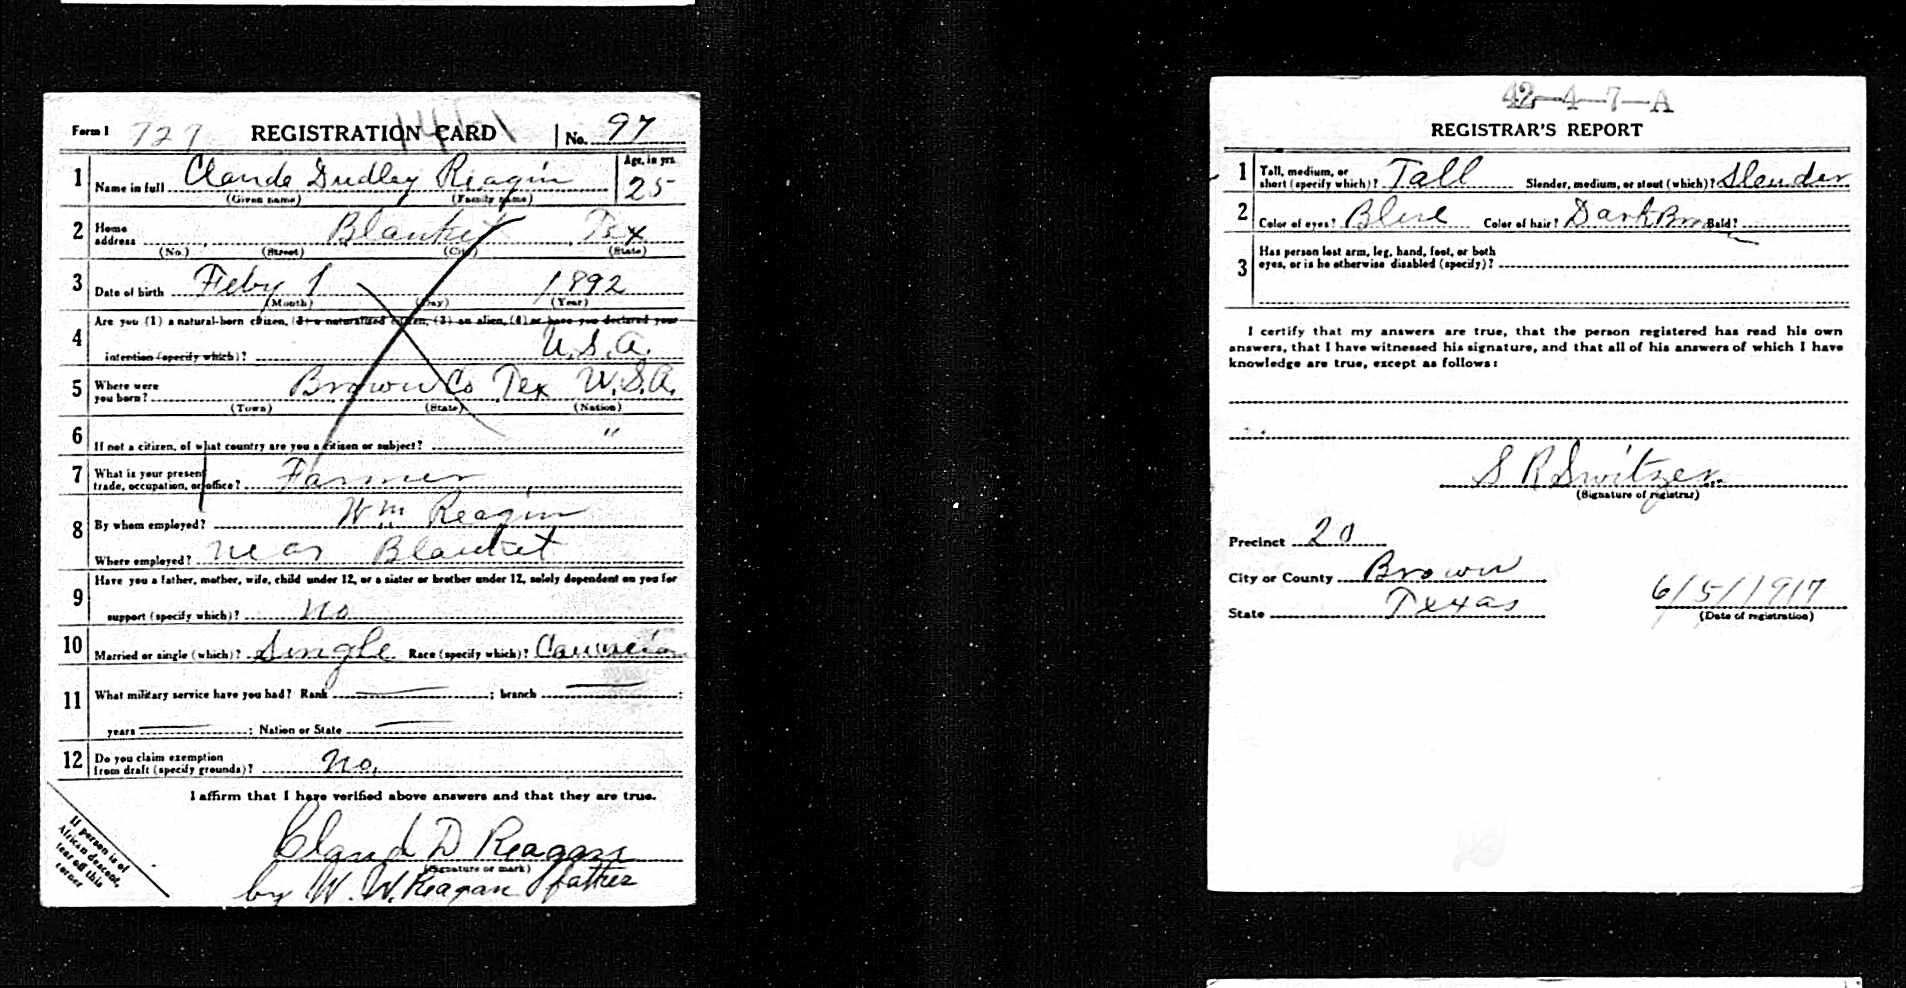 Form 1 727 REGISTRATION CARD No. 97
1 Name in full Claude Dudley Reagin Age, in yrs. 25
(Given name) (Family name)
2 Home address Blanket Tex
(No.) (Street) (City) (State)
3 Date of birth Feby 1 1892
(Month) (Day) (Year)
4 Are you (1) a natural-born citizen, (2) a naturalized citizen, (3) an alien, (4) or have you declared your
intention (specify which)? U.S.A.
5 Where were you born? Brown Co Tex U.S.A.
(Town) (State) (Nation)
6 If not a citizen, of what country are you a citizen or subject? "
7 What is your present trade, occupation, or office? Farmer
8 By whom employed? Wm Reagin
Where employed? near Blanket
9 Have you a father, mother, wife, child under 12, or a sister or brother under 12, solely dependent on you for
support (specify which)? no
10 Married or single (which)? Single Race (specify which)?
11 What military service have you had? Rank — ; branch — ;
years — ; Nation or State —
12 Do you claim exemption from draft (specify grounds)? no.
I affirm that I have verified above answers and that they are true.
Claud D Reagan
(Signature or mark)
by W. W. Reagan father
If person is of
African descent,
tear off this
corner
42-4-7-A
REGISTRAR'S REPORT
1 Tall, medium, or short (specify which)? Tall Slender, medium, or stout (which)? Slender
2 Color of eyes? Blue Color of hair? Dark Brown Bald?
3 Has person lost arm, leg, hand, foot, or both
eyes, or is he otherwise disabled (specify)?
I certify that my answers are true, that the person registered has read his own
answers, that I have witnessed his signature, and that all of his answers of which I have
knowledge are true, except as follows:
S R Switzer
(Signature of registrar)
Precinct 20
City or County Brown
State Texas
6/5/1917
(Date of registration)